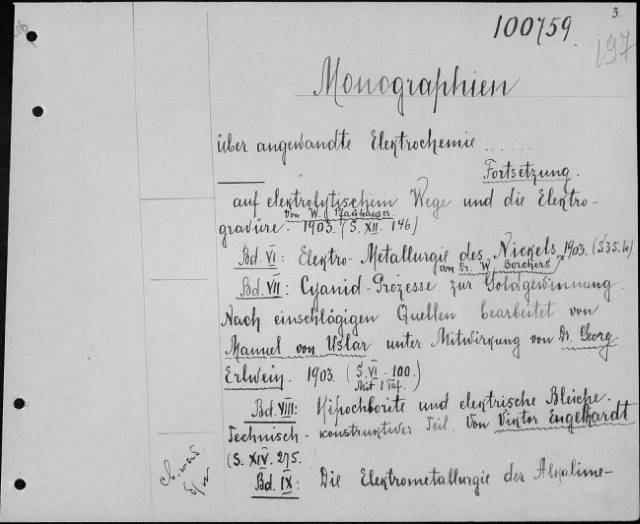 3.
100759
197
Monographien
über angewandte Elektrochemie ......
Fortsetzung.
auf elektrolytischem Wege und die Elektro-
von W. Pfanhauser.
gravüre. 1903. (S. XII. 146)
Bd. VI: Elektro-Metallurgie des Nickels, 1903. (S 35. (4)
von Dr. W. Borchers
Bd. VII: Cyanid-Prozesse zur Goldgewinnung.
Nach einschlägigen Quellen bearbeitet von
Manuel von Uslar unter Mitwirkung von Dr. Georg
Erlwein. 1903. (S. VI - 100.)
Mit 1 Taf.
Bd. VIII: Hipochborite und elektrische Bleiche.
Technisch-konstruktiver Teil. Von Viktor Engelhardt
(S. XIV. 275.
Bd. IX: Die Elektrometallurgie der Alkalime-